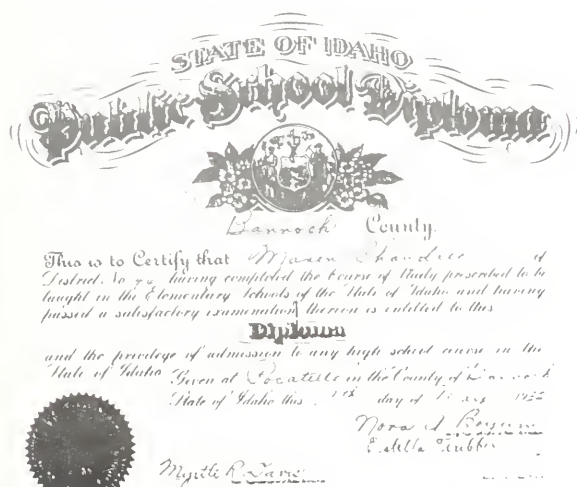 STATE OF IDAHO
Public School Diploma
Bannock County.
This is to Certify that of
District No having completed the Course of Study prescribed to be
taught in the Elementary Schools of the State of Idaho and having
passed a satisfactory examination therein is entitled to this
Diploma
and the privilege of admission to any high school course in the
State of Idaho Given at Pocatello in the County of Bannock
State of Idaho this day of
Nora
Estella
Myrtle R. Davis